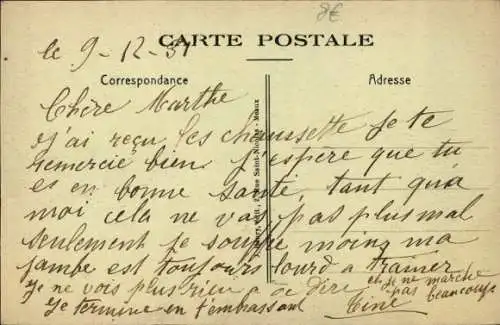 8€
le 9-12-31
CARTE POSTALE
Correspondance
Adresse
Chère Marthe
j'ai reçu les chaussette je te
remercie bien j'espère que tu
es en bonne santé, tant qu'a
moi cela ne vas pas plus mal
seulement je souffre moins ma
jambe est toujours lourd a trainer
et je ne marche
pas beaucoup
Je ne vois plus rien a te dire
Je termine en t'embrassant
Tine
édit., 2, Rue Saint-Nicolas - Meaux